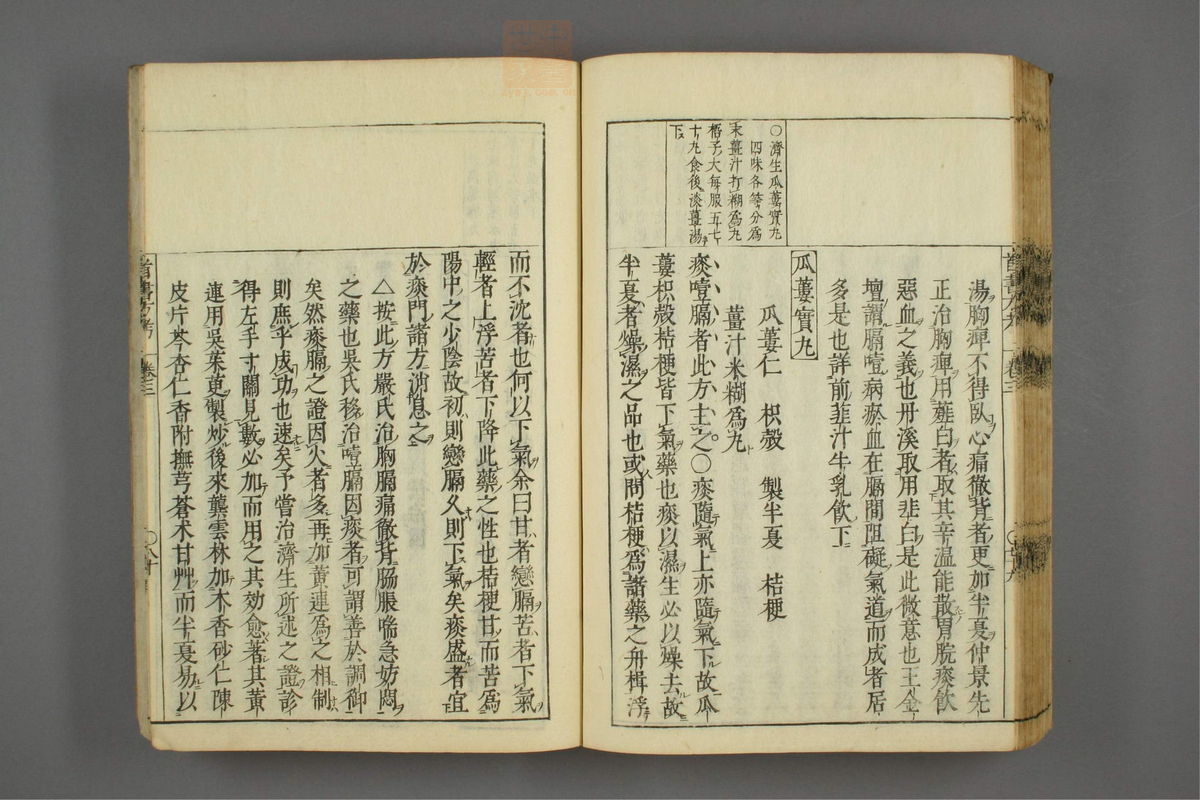 湯胸痺不得臥心痛徹背者更加半夏仲景先
正治胸痺用薤白者取其辛温能散胃脘痰飲
惡血之義也丹溪取用韭白是此微意也王金
壇謂膈噎病瘀血在膈間阻礙氣道而成者居
多是也詳前韭汁牛乳飲下
○濟生瓜蔞實丸
四味各等分爲
末薑汁打糊爲丸
梧子大每服五七
十丸食後淡薑湯
下
瓜蔞實丸
瓜蔞仁 枳殼 製半夏 桔梗
薑汁米糊爲丸
痰噎膈者此方主之○痰隨氣上亦隨氣下故瓜
蔞枳殼桔梗皆下氣藥也痰以濕生必以燥去故
半夏者燥濕之品也或問桔梗爲諸藥之舟楫浮
而不沈者也何以下氣余曰甘者戀膈苦者下氣
輕者上浮苦者下降此藥之性也桔梗甘而苦爲
陽中之少陰故初則戀膈久則下氣矣痰盛者宜
於痰門諸方消息之
△按此方嚴氏治胸膈痛徹背脇脹喘急妨悶
之藥也吳氏移治噎膈因痰者可謂善於調御
矣然痰膈之證因火者多再加黃連爲之相制
則庶乎成功也速矣予嘗治濟生所述之證診
得左手寸關見數必加而用之其効愈著其黃
連用吳茱萸製炒後來龔雲林加木香砂仁陳
皮片芩杏仁香附撫芎蒼朮甘艸而半夏易以